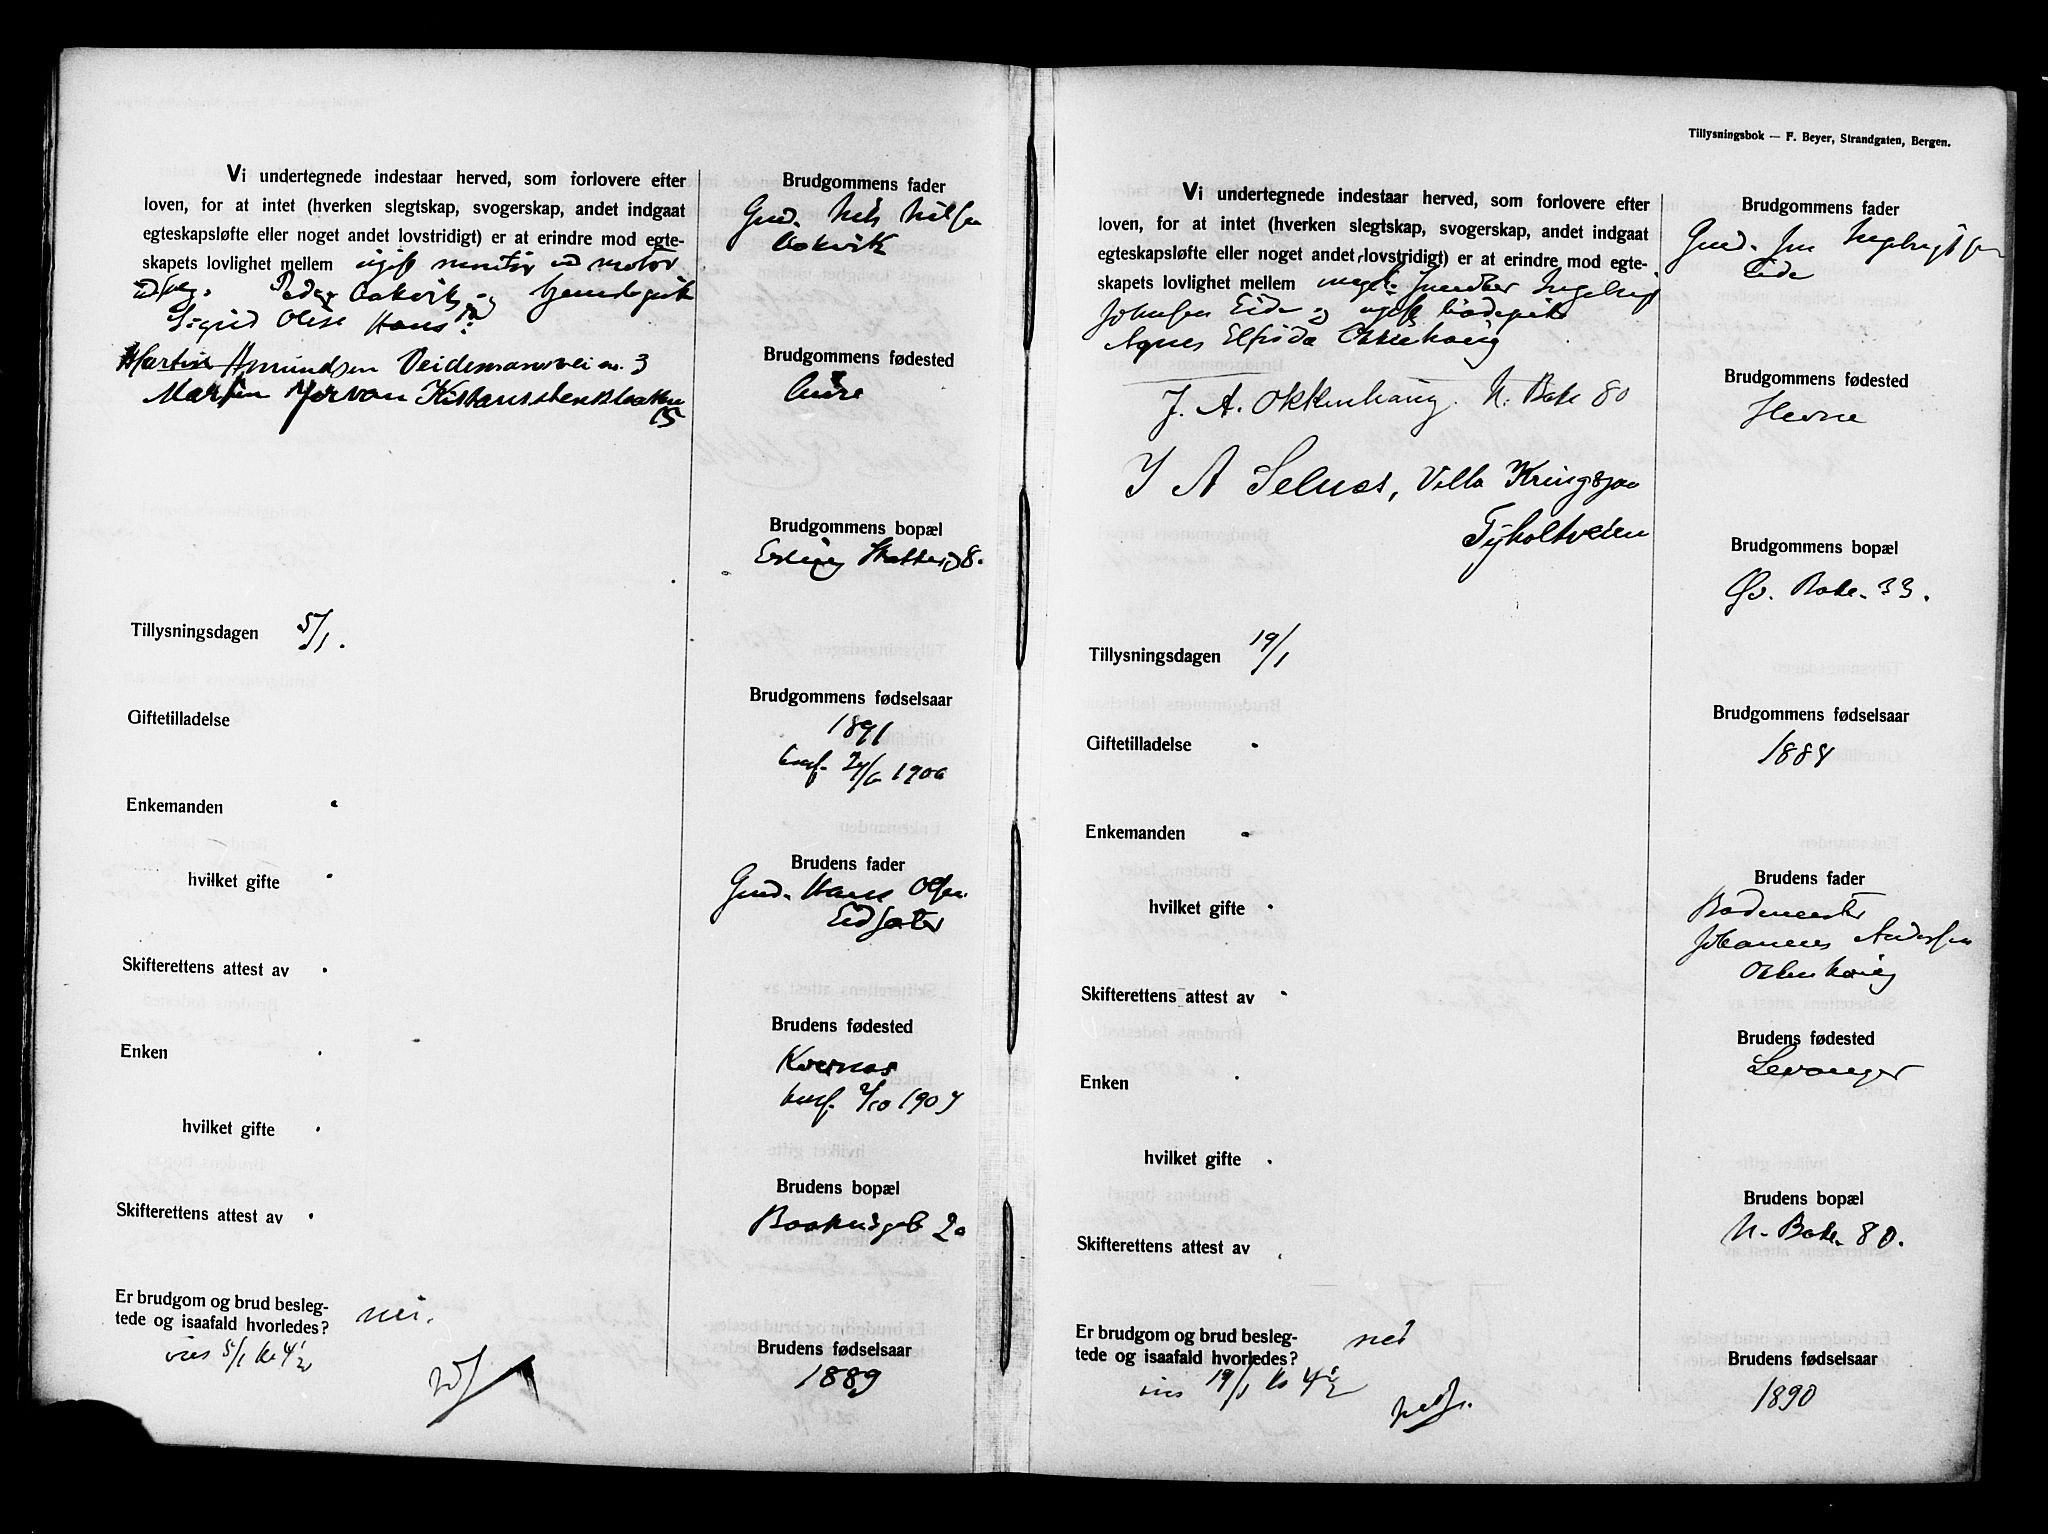 Vi undertegnede indestaar herved, som forlovere efter
loven, for at intet (hverken slegtskap, svogerskap, andet indgaat
egteskapsløfte eller noget andet lovstridigt) er at erindre mod egte-
skapets lovlighet mellem ugift montør ved motor
Peder Aakvik og hjemmepike
Sigrid Oline Hans
Martin Amundsen Veidemansvei no. 3
Martin Jervan
15
Tillysningsdagen 5/1.
Giftetilladelse
Enkemanden
hvilket gifte
Skifterettens attest av
Enken
hvilket gifte
Skifterettens attest av
Er brudgom og brud besleg-
tede og isaafald hvorledes? nei.
vies 5/1 kl 4 1/2
Brudgommens fader
Gmd. Nils Nilsen
Aakvik
Brudgommens fødested
Brudgommens bopæl
Erling Skakkes 8.
Brudgommens fødselsaar
1891
1906
Brudens fader
Gmd. Hans Olsen
Eidsæter
Brudens fødested
Kvernes
konf. 1907
Brudens bopæl
Baahusgt 20
Brudens fødselsaar
1889
Tillysningsbok — F. Beyer, Strandgaten, Bergen.
Vi undertegnede indestaar herved, som forlovere efter
loven, for at intet (hverken slegtskap, svogerskap, andet indgaat
egteskapsløfte eller noget andet lovstridigt) er at erindre mod egte-
skapets lovlighet mellem ungk. snedker Ingebrigt
Johnsen Eide og ugift
Agnes Elfrida Okkenhaug
J. A. Okkenhaug. N. Bakl. 80
I A Selnæs, Villa Kringsjaa
Tyholtveien
Tillysningsdagen 19/1
Giftetilladelse
Enkemanden
hvilket gifte
Skifterettens attest av
Enken
hvilket gifte
Skifterettens attest av
Er brudgom og brud besleg-
tede og isaafald hvorledes? nei
vies 19/1 kl 4 1/2
Brudgommens fader
Gmd. Jon Ingebrigtsen
Eide
Brudgommens fødested
Hevne
Brudgommens bopæl
Øv. Bakl. 33.
Brudgommens fødselsaar
1888
Brudens fader
Bademester
Johannes Andersen
Okkenhaug
Brudens fødested
Levanger
Brudens bopæl
N. Bakl. 80.
Brudens fødselsaar
1890